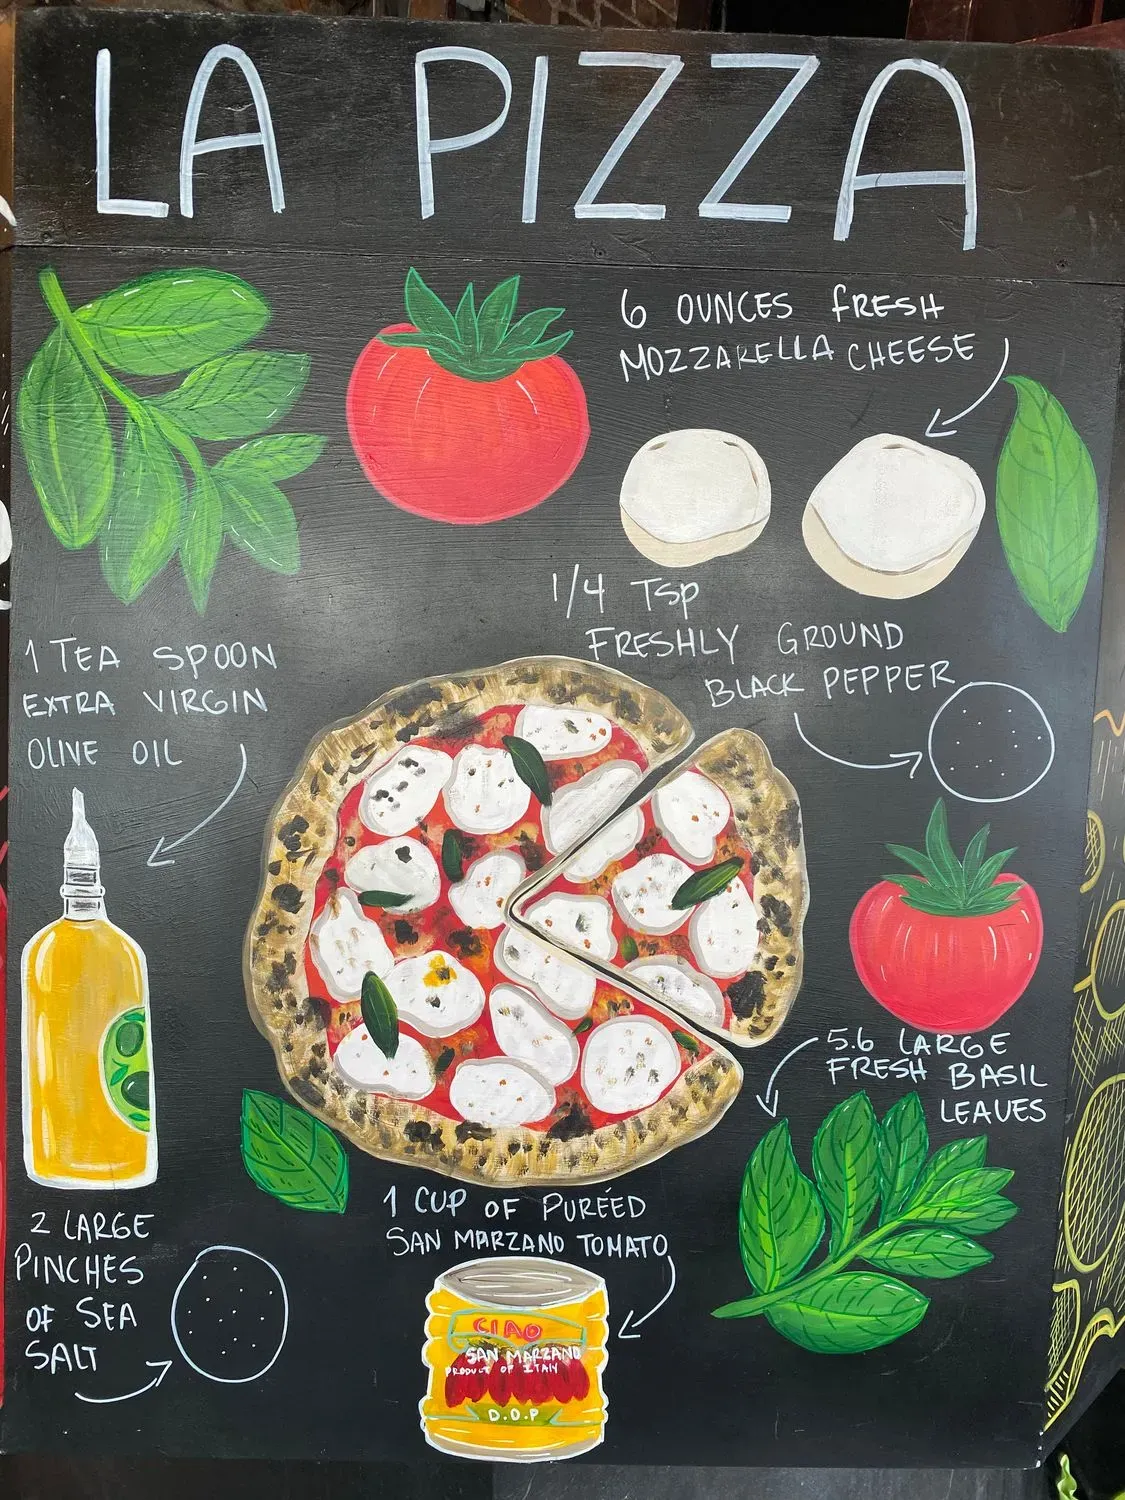 LA PIZZA
6 OUNCES FRESH
MOZZARELLA CHEESE
1/4 Tsp
FRESHLY GROUND
BLACK PEPPER
1 TEA SPOON
EXTRA VIRGIN
OLIVE OIL
5.6 LARGE
FRESH BASIL
LEAVES
1 CUP OF PURÉED
SAN MARZANO TOMATO
2 LARGE
PINCHES
OF SEA
SALT
CIAO
SAN MARZANO
PRODUCT OF ITALY
D.O.P